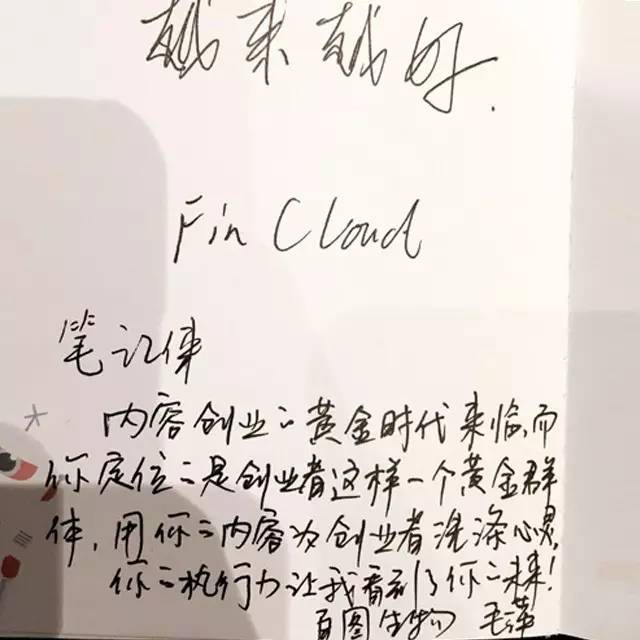 越来越好.
Fin Cloud
笔记侠
内容创业的黄金时代来临,而
你定位的是创业者这样一个黄金群
体,用你的内容为创业者洗涤心灵,
你的执行力让我看到了你的未来!
百图生物 毛萍